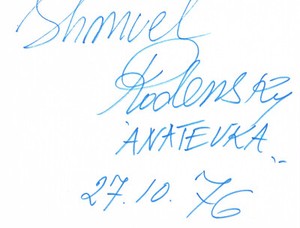 Shmuel
Rodensky
"ANATEVKA"
27.10.76